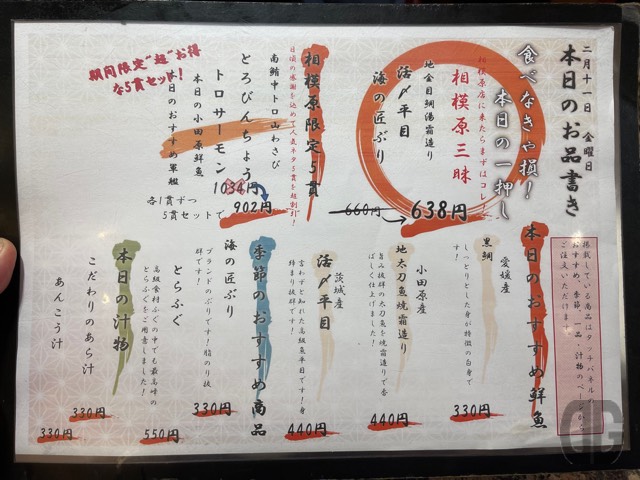 本日のお品書き
二月十一日 金曜日
食べなきゃ損!
本日の一押し
相模原店に来たらまずはコレ!
相模原三昧
地金目鯛湯霜造り
活〆平目
海の匠ぶり
660円
638円
相模原限定5貫
日頃の感謝を込めて人気ネタ5貫を超割引!
南鮪中トロ山わさび
とろびんちょう
トロサーモン
本日の小田原鮮魚
本日のおすすめ軍艦
期間限定"超"お得
な5貫セット!
1034円
902円
各1貫ずつ
5貫セットで
掲載している商品はタッチパネルの
おすすめ、季節、一品、汁物のページから
ご注文いただけます。
本日のおすすめ鮮魚
愛媛産
黒鯛
しっとりとした身が特徴の白身で
す!
330円
小田原産
地太刀魚焼霜造り
旨み抜群の太刀魚を焼霜造りで香
ばしく仕上げました!
440円
茨城産
活〆平目
言わずと知れた高級魚平目です!身
締まり抜群です!
440円
季節のおすすめ商品
海の匠ぶり
ブランドのぶりです!脂のり抜
群です!
330円
とらふぐ
高級食材ふぐの中でも最高峰の
とらふぐをご用意しました!
550円
本日の汁物
こだわりのあら汁
330円
あんこう汁
330円